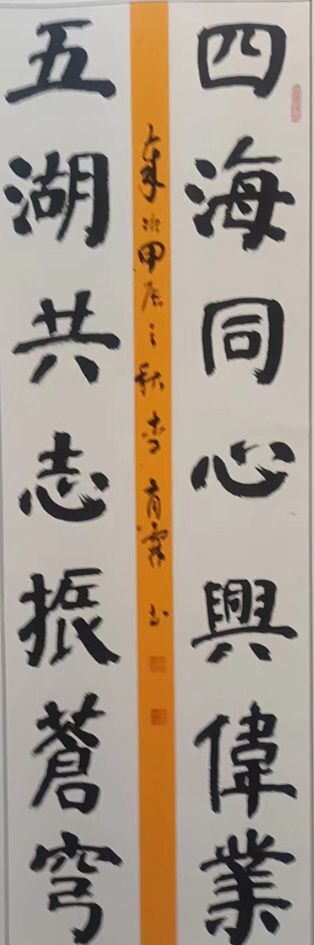 四海同心興偉業
五湖共志振蒼穹
歲次甲辰之秋李育霖书